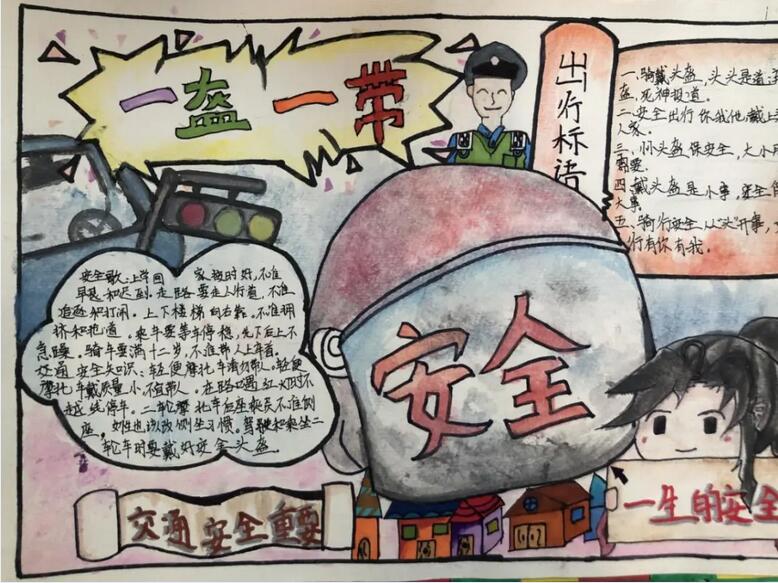 一盔一带
出行标语
一、骑戴头盔,头头是道,
盔,死神投道。
二、安全出行你我他,戴上
人家。
三、小小头盔保安全,大小
需要。
四、戴头盔是小事,安全
大事
五、骑行安全从“头”开事,
行有你有我。
安全歌:上学回家按时好,不准
早退和迟到。走路要走人行道,不准
追逐和打闹。上下楼梯向右靠,不准拥
挤和抢道。乘车要等车停稳,先下后上不
急躁。骑车要满十二岁,不准带人上车着。
交通安全知识:轻便摩托车请勿带人。轻便
摩托车载质量小,不宜带人。在路口遇红灯时不
越线停车。二轮摩托车后座乘客不准侧
座,女性也该改侧坐习惯。驾驶和乘坐二
轮车时要戴好安全头盔
安全
交通安全重要
一生的安全